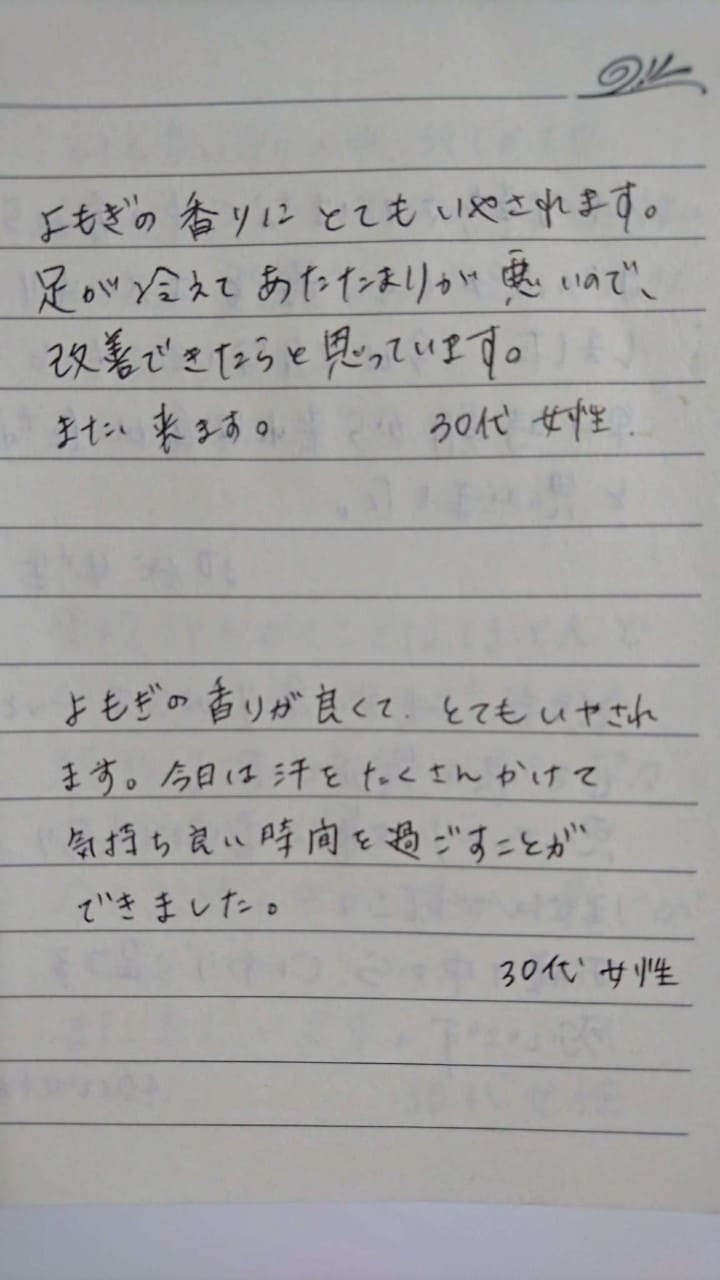 よもぎの香りにとてもいやされます。
足が冷えてあたたまりが悪いので、
改善できたらと思っています。
またい来ます。 30代 女性.
よもぎの香りが良くて. とてもいやされ
ます。今日は汗をたくさんかけて
気持ち良い時間を過ごすことが
できました。
30代 女性